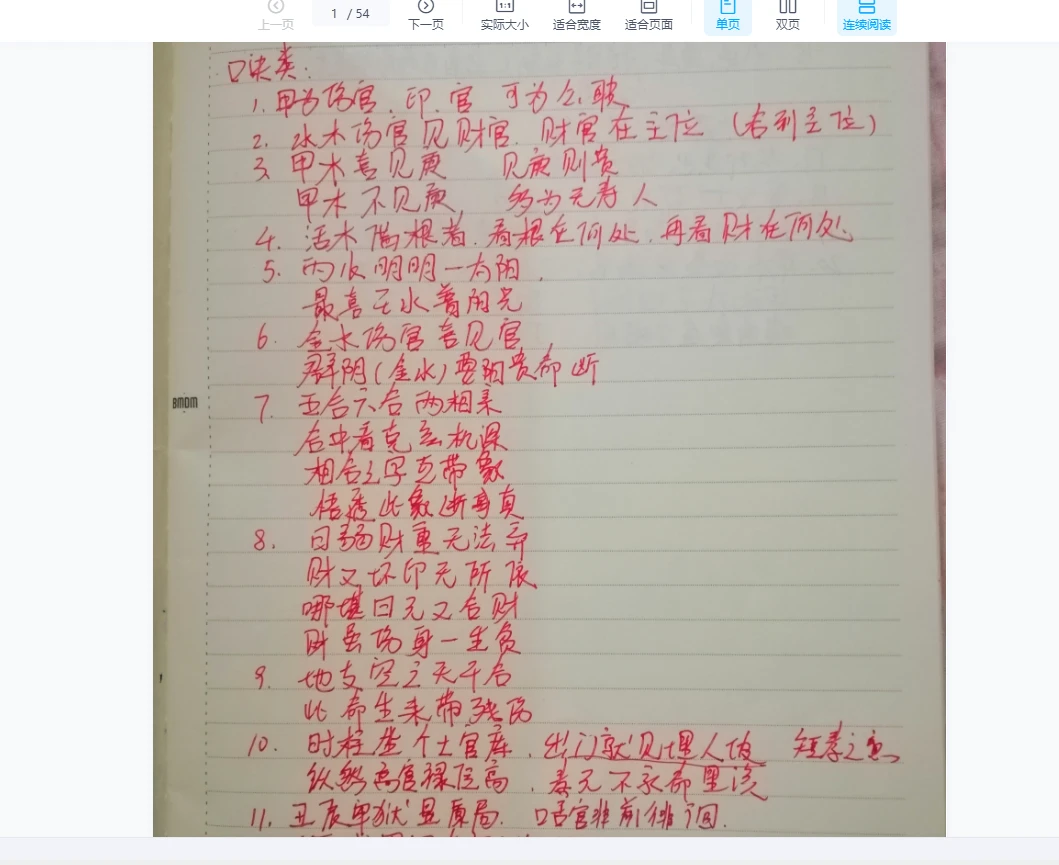 上一页
1 / 54
下一页
1:1
实际大小
适合宽度
适合页面
单页
双页
连续阅读
口诀类:
1. 甲为伤官.印.官 可为公职
2. 水木伤官见财官. 财官在主位 (右到主位)
3. 甲木喜见庚 见庚则贵
甲木不见庚 多为无寿人
4. 活木 根者. 看根在何处. 再看财在何处
5. 丙火明明一太阳.
最喜壬水普阳光
6. 金水伤官喜见官
群阴(金水)要阳贵命断
BMDM
7. 五合六合两相亲
合中看克玄机深
相合之字克带象
悟透此象断事真
8. 日弱财重无法弃
财又坏印无所依
哪堪日元又合财
财虽伤身一生贪
9. 地支空亡天干合
此命生来带残伤
10. 时柱坐个土官库. 出门就见埋人坡 短寿之
纵然高官禄位高. 寿元不永命里该
11. 丑辰 狱显原局. 官非前徘徊.